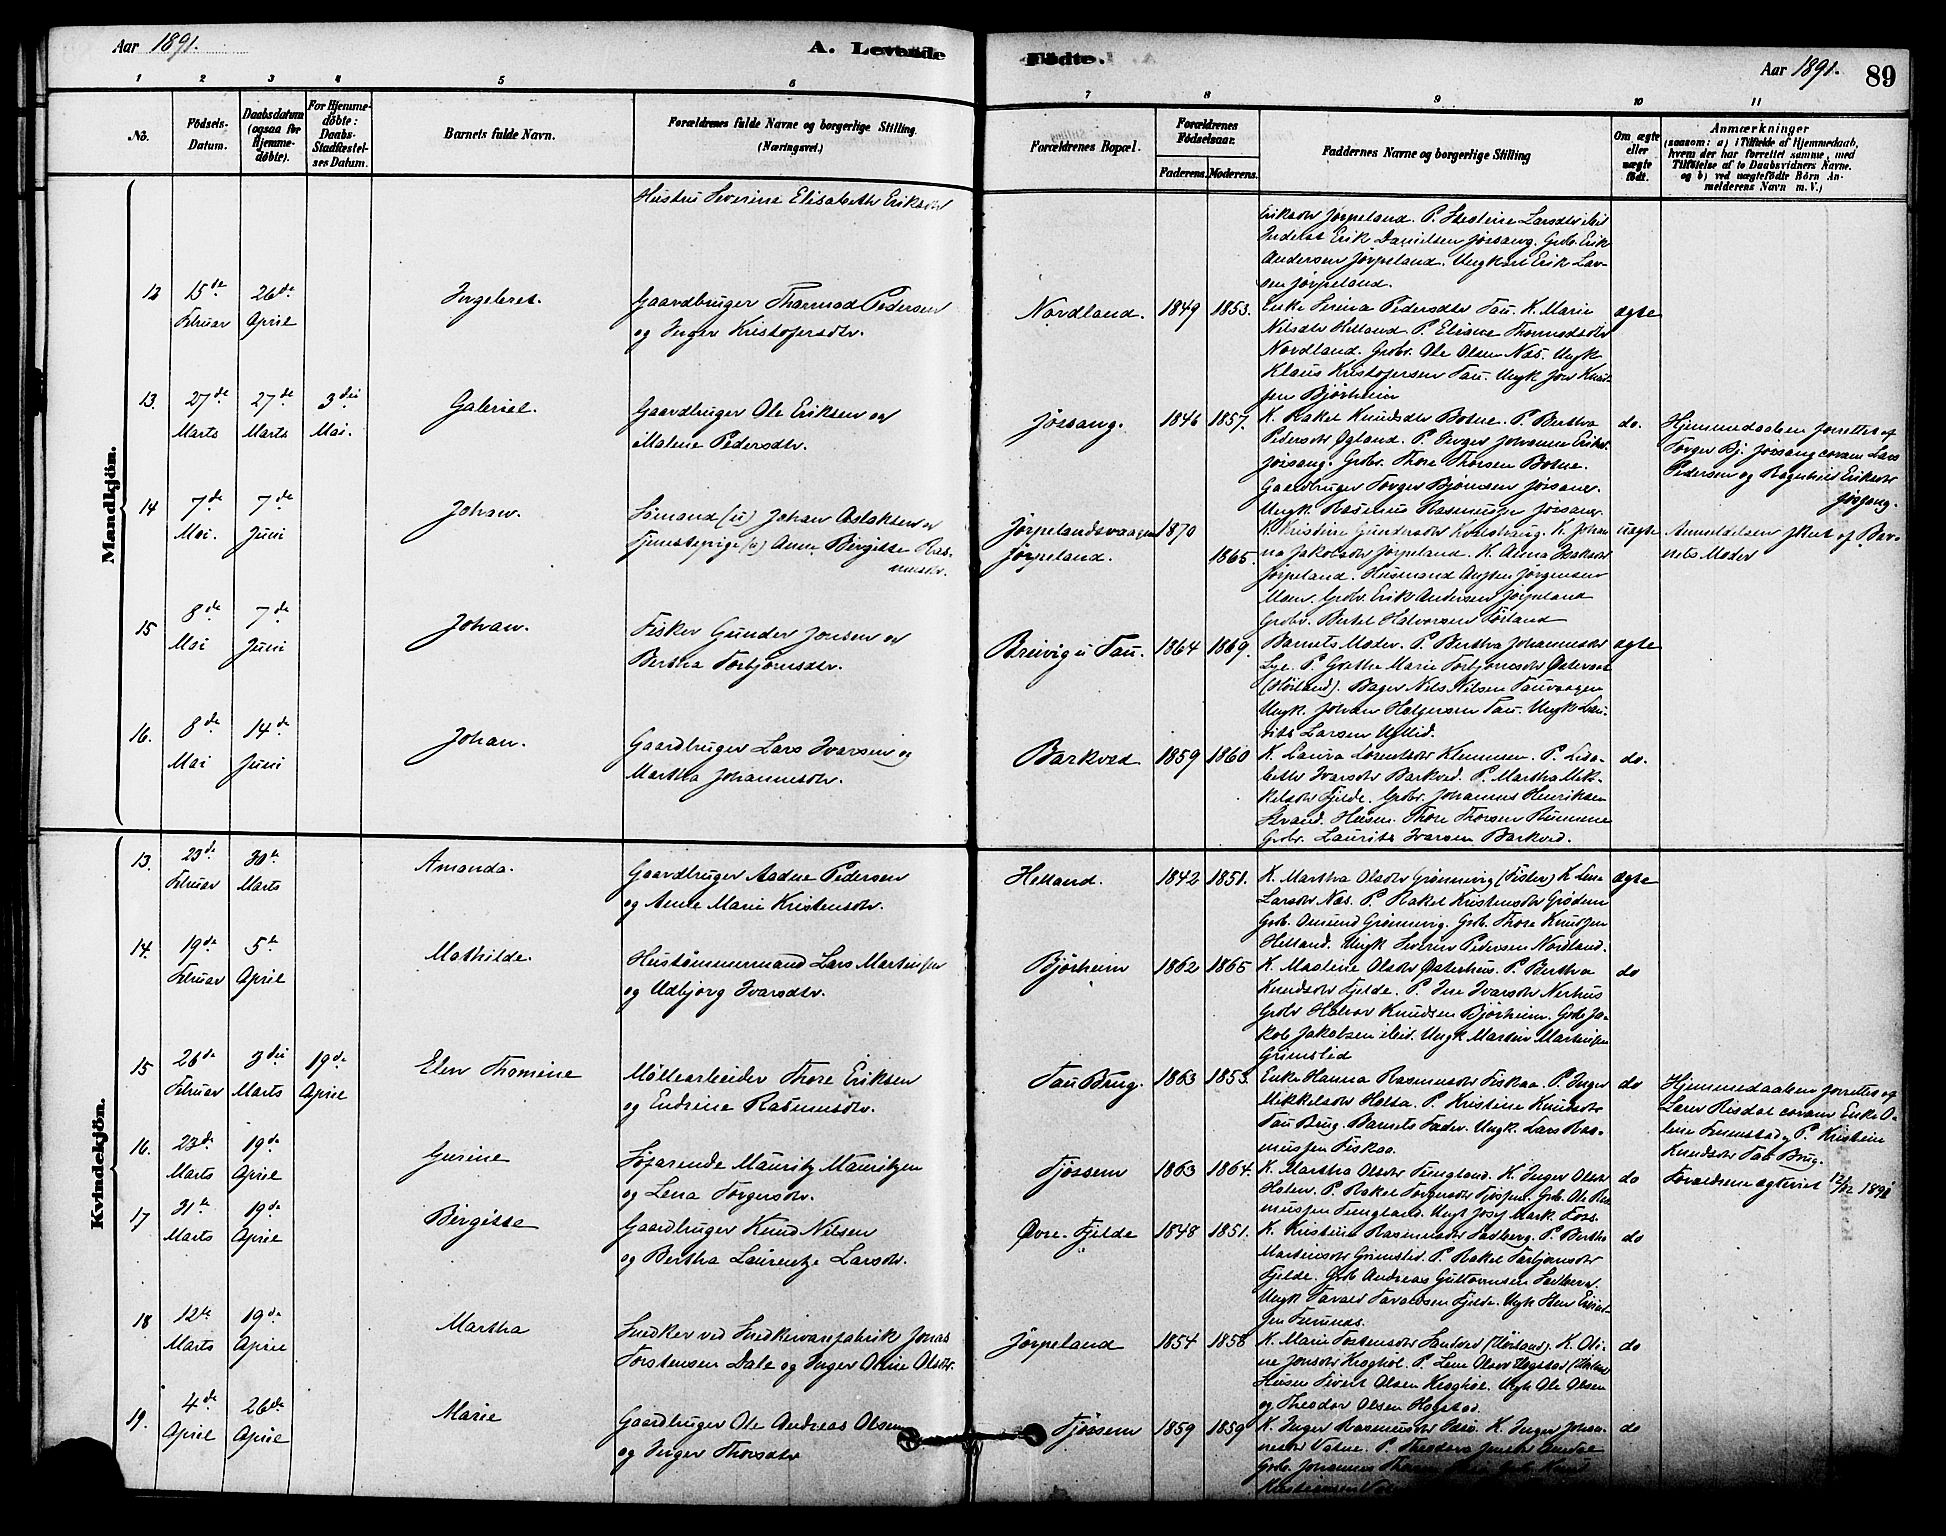 Aar 1891.
A. Levende
Födte.
Aar 1891.
89
1 2 3 4 5 6 7 8 9 10 11
No.
Födsels-Datum.
Daabsdatum (ogsaa for Hjemme-döbte).
For Hjemme-döbte: Daabs-Stadfæstelses Datum.
Barnets fulde Navn.
Forældrenes fulde Navne og borgerlige Stilling.
(Næringsvei.)
Forældrenes Bopæl.
Forældrenes Födselsaar.
Faderens. Moderens.
Faddernes Navne og borgerlige Stilling
Om ægte eller uægte födt.
Anmærkninger
(saasom: a) i Tilfælde af Hjemmedaab, hvem der har forrettet samme, med Tilföielse af to Daabsvidners Navne. og b) ved uægtefödte Börn Anmelderens Navn m. V.)
Mandkjön.
Hustru Severine Elisabeth Eriksdtr
Eriksdtr Jørpeland. P. Larsdtr ibid
Erik Danielsen Jøssang. Grdb. Erik
Andersen Jørpeland. Ungkarl Erik Lar-
sen Jørpeland.
12 15de Februar 26de April
Ingebret.
Gaardbruger Thormod Pedersen
og Inger Kristofersdtr.
Nordland. 1849 1853.
Enke Serina Pedersdtr Tau. K. Marie
Nilsdtr Helland. P. Eliane Thormodsdtr
Nordland. Grdbr. Ole Olsen Næs. Ungk.
Klaus Kristofersen Tau. Ungk Jon Knud-
sen Bjørheim
ægte
13. 27de Marts 27de Marts 3die Mai.
Gabriel.
Gaardbruger Ole Eriksen og
Malene Pedersdtr.
Jøssang. 1846 1857.
K. Rakel Knudsdtr Botne. P. Bertha
Pedersdtr Øgland. P. Inger Johanne Eriksd.
Jøssang. Grdbr. Thore Thorsen Botne.
Gaardbruger Torger Bjørnsen Jøssang.
Ungk. Rasmus Rasmussen Jøssang.
do.
Hjemmedaaben forrettet af
Torger Bj. Jøssang coram Lars
Pedersen og Ragnhild Eriksdtr
Jøssang.
14 7de Mai. 7de Juni
Johan.
Sømand (u) Johan Aslaksen og
Tjenestepige (u) Anne Birgitte Ras-
musdtr.
Jørpelandsvaagen 1870
Jørpeland. 1865.
K. Kristine Gundersdtr Kvalshaug. K. Johan-
na Jakobsdtr Jørpeland. K. Anna Isaksdtr
Jørpeland. Husmand Jørgensen
Moen. Grdbr. Erik Andersen Jørpeland
Grdbr. Bertel Halvorsen Førland
uægte
Anmeldelsen skeet af Bar-
nets Moder
15 8de Mai 7de Juni
Johan.
Fisker Gunder Jonsen og
Bertha Torbjørnsdtr.
Breivig i Tau. 1864 1869.
Barnets Moder. P. Bertha Johannesdtr
Lye. P. Grethe Marie Torbjørnsdtr
Bager Nils Nilsen Tauvaagen
Ungk. Johan Holgersen Tau. Ungk Lau-
rits Larsen
ægte
16. 8de Mai 14de Juni
Johan.
Gaardbruger Lars Ivarsen og
Martha Johannesdtr.
Barkved 1859 1860
K. Laura Klemmen. P. Lisa-
beth Ivarsdtr Barkved. P. Martha Mik-
kelsdtr Fjelde. Grdbr. Johannes Henriksen
Strand. Husm. Thore Thorsen
Grdbr. Laurits Ivarsen Barkved.
do.
Kvindekjön.
13. 23de Februar 30te Marts
Amanda.
Gaardbruger Aadne Pedersen
og Anne Marie Kristensdtr.
Helland. 1842 1851.
K. Martha Olsdtr Grønnevig (Fister) K Lene
Larsdtr Næs. P. Rakel Kristensdtr Grødem
Grdb. Amund Grønnevig. Grdb. Thore Knudsen
Helland. Ungk Severin Pedersen Nordland.
ægte
14. 19de Februar 5te April
Mathilde.
Hustømmermand Lars Martinsen
og Udbjørg Ivarsdtr.
Bjørheim 1862 1865
K. Madine Olsdtr Østerhus. P. Bertha
Knudsdtr Fjelde. P. Ivarsdtr Nerhus
Grdbr Halvor Knudsen Bjørheim. Grdb Ja-
kob Jakobsen ibid. Ungk Martin Martinsen
Grimslid
do
15 26de Februar 3die Marts 19de April
Elen Thomine
Møllearbeider Thore Eriksen
og Endrine Rasmusdtr.
Tau Brug. 1863 1853.
Enke Hanna Rasmusdtr Fiskaa. P. Inger
Mikkelsdtr Holta. P. Kristine Knudsdtr
Tau Brug. Barnets Fader. Ungk. Lars Ras-
mussen Fiskaa.
do
Hjemmedaaben forrettet af
Lars Risdal coram Enke O-
line P. Kristine
Knudsdtr Tau Brug.
16. 23de Marts 19de April
Gurine
Søfarende Mauritz Mauritzen
og Lena Torgersdtr.
Tjøssem 1863 1864.
K. Martha Olsdtr Tungland. K. Inger Olsdtr
P. Rakel Torgersdtr Tjøssem. Grdb. Ole Ras-
mussen Tungland. Ungk Josef Mark. Foss.
do
Forældrene ægteviet 12/12 1890
17 31te Marts 19de April
Birgitte
Gaardbruger Knud Nilsen
og Bertha Laurentze Larsdtr.
Øvre. Fjelde 1848 1851.
K. Kristine Rasmusdtr Sedberg. P. Bertha
Martinsdtr Grimslid. P. Rakel Torbjørnsdtr
Fjelde. Grdb Andreas Guttormsen Sedberg
Ungk Tarald Taraldsen Fjelde. Ungk
do
18 12te Marts 19de April
Martha
Snedker ved Snedkerverefabrik Jonas
Torstensen Dale og Inger Oline Olsdtr.
Jørpeland 1854 1858
K. Marie Torstensdtr Sandved (Høiland). K. Oli-
ne Jonsdtr Kroghøl. P. Lene Olsdtr
Husm Sivert Olsen Kroghøl. Ungk Ole Olsen
og Theodor Olsen
do
19. 4de April 26de April
Marie
Gaardbruger Ole Andreas Olsen
og Inger Thorsdtr
Tjøssem 1859 1859
K. Inger Rasmusdtr K. Inger Johan-
nesdtr Vatne. P. Theodora
Grdb. Johannes
do